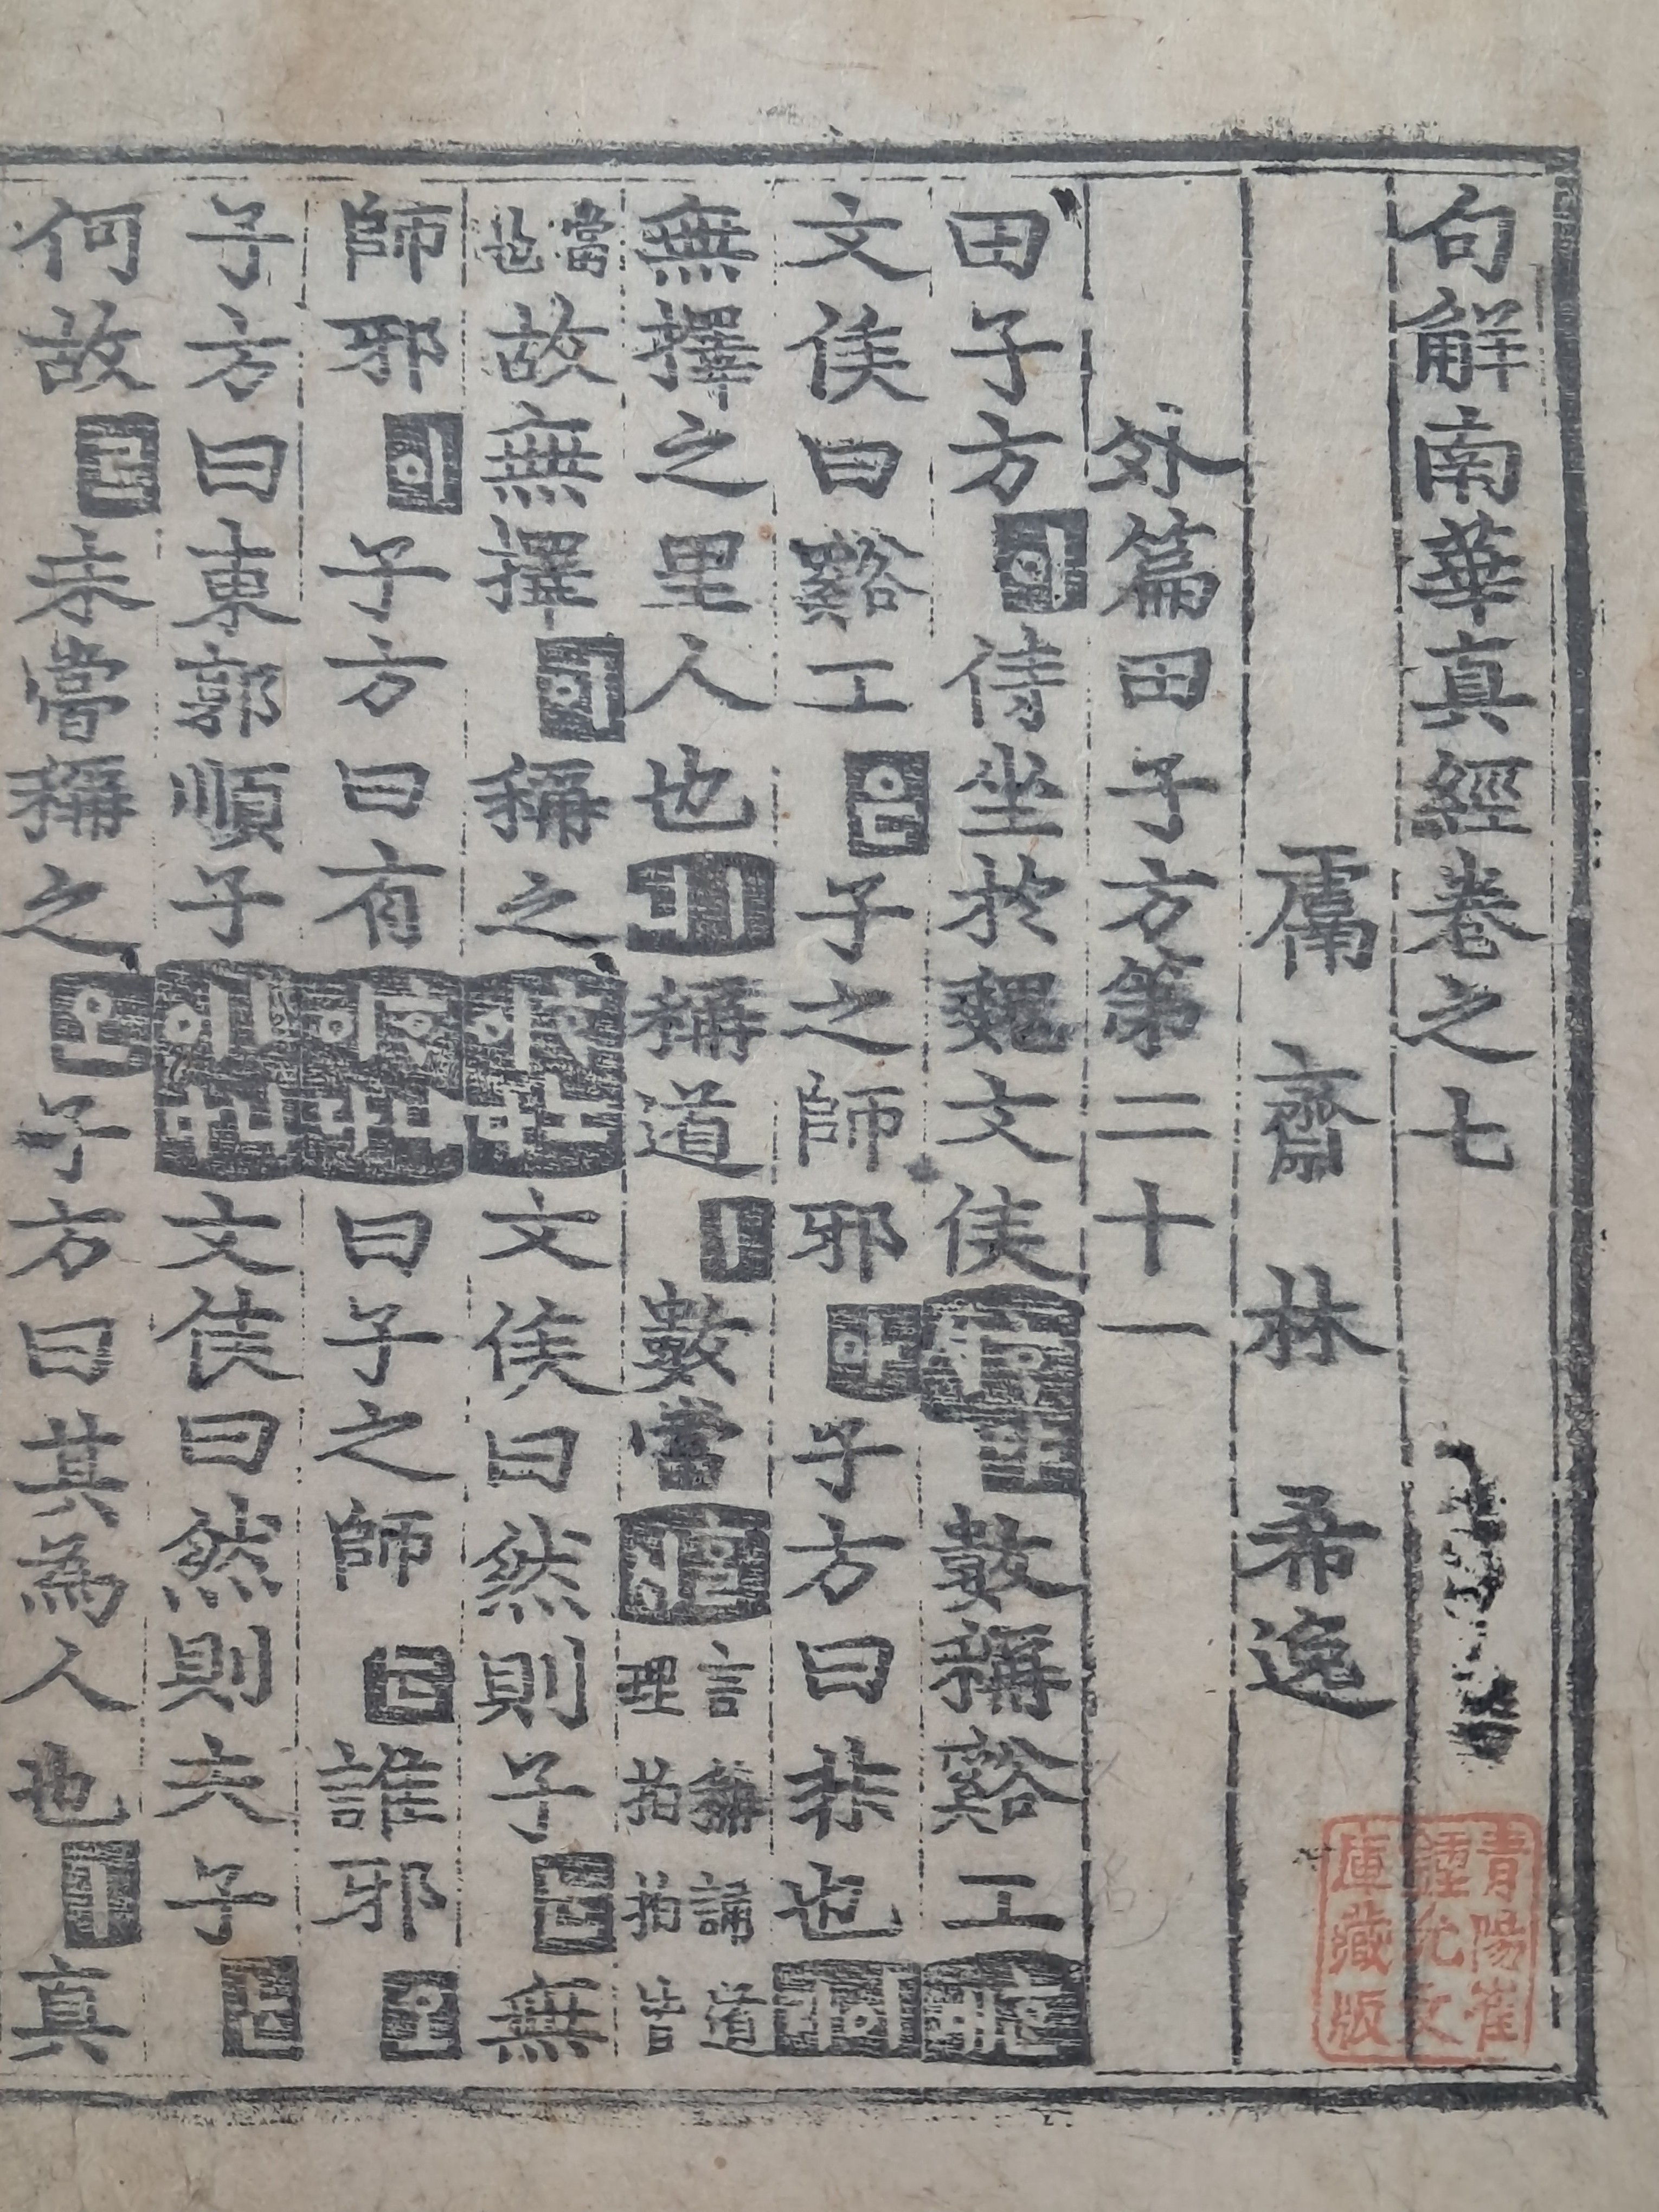 句解南華真經卷之七
鬳齋林希逸
外篇田子方第二十一
田子方이侍坐於魏文侯數稱谿工
文侯曰谿工子之師邪子方曰非也
無擇之里人也稱道ㅣ數當言稱講道理
當也故無擇이稱之文侯曰然則子無
師邪子方曰有曰子之師誰邪
子方曰東郭順子文侯曰然則夫子
何故未嘗稱之오子方曰其為人也ㅣ真
青陽崔
鍾允文
庫藏版